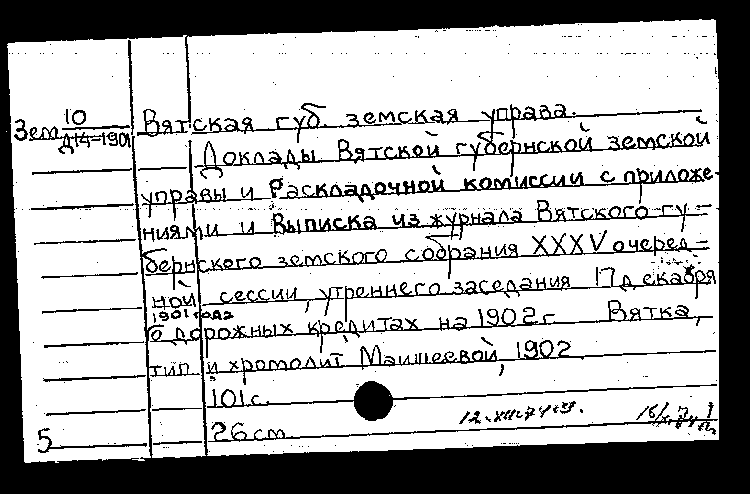 Зем 10
Д14-1901
Вятская губ. земская управа.
Доклады Вятской губернской земской
управы и Раскладочной комиссии с приложе-
ниями и Выписка из журнала Вятского гу-
бернского земского собрания XXXV очеред-
ной сессии, утреннего заседания 17 декабря
1901 года
о дорожных кредитах на 1902 г. Вятка,
тип. и хромолит Маишеевой, 1902
101 с.
26 см.
5